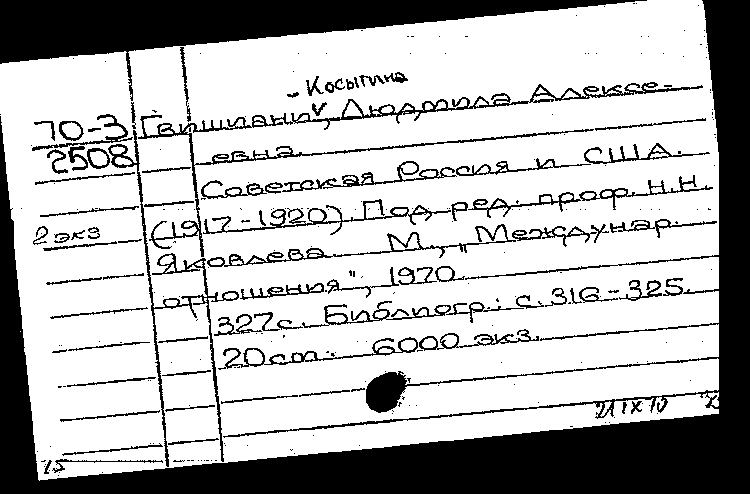 - Косыгина
70-3 Гвишиани, Людмила Алексе-
2508 евна.
Советская Россия и США.
2 экз (1917-1920). Под ред. проф. Н.Н.
Яковлева. М., „Междунар.
отношения", 1970.
327с. Библиогр.: с. 316-325.
20см. 6000 экз.
21 IX 70
15